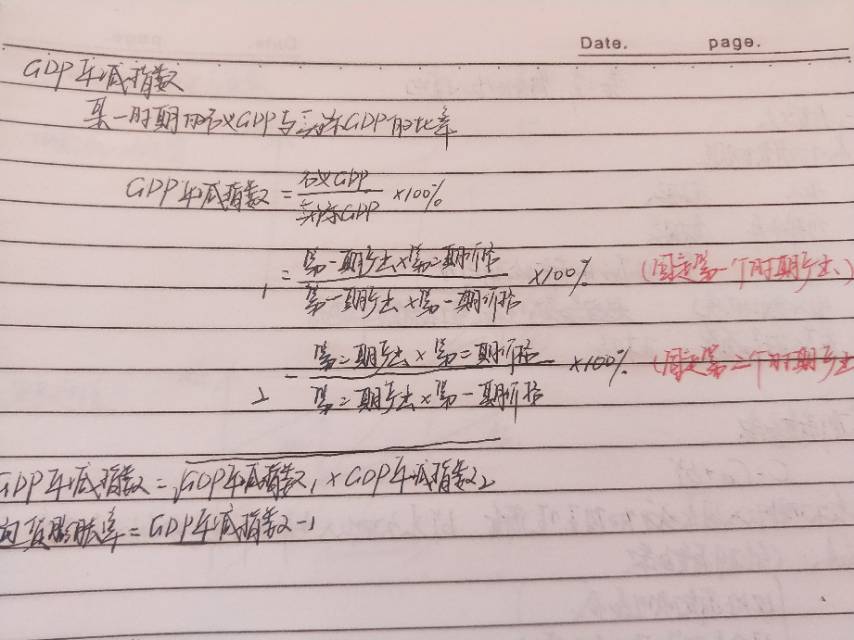 Date. page.
GDP平减指数
某一时期的名义GDP与实际GDP的比率
GDP平减指数 = 名义GDP / 实际GDP ×100%
1 = 第一期产出×第二期价格 / 第一期产出×第一期价格 ×100% (固定第一个时期产出)
2 = 第二期产出×第二期价格 / 第二期产出×第一期价格 ×100% (固定第二个时期产出
GDP平减指数 = √GDP平减指数1 × GDP平减指数2
通货膨胀率 = GDP平减指数-1